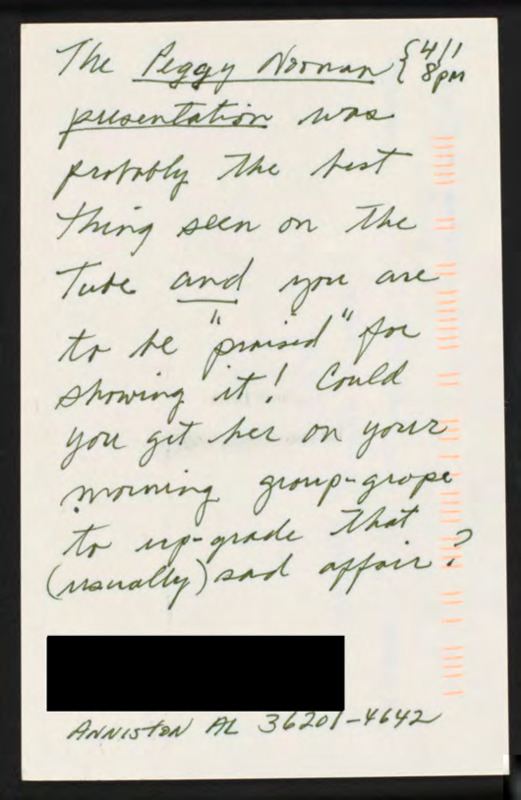 The Peggy Noonan {4/1
8pm
presentation was
probably the best
thing seen on the
Tube and you are
to be "praised" for
showing it! Could
you get her on your
morning group-grope
to up-grade that
(usually) sad affair?
ANNISTON AL 36201-4642